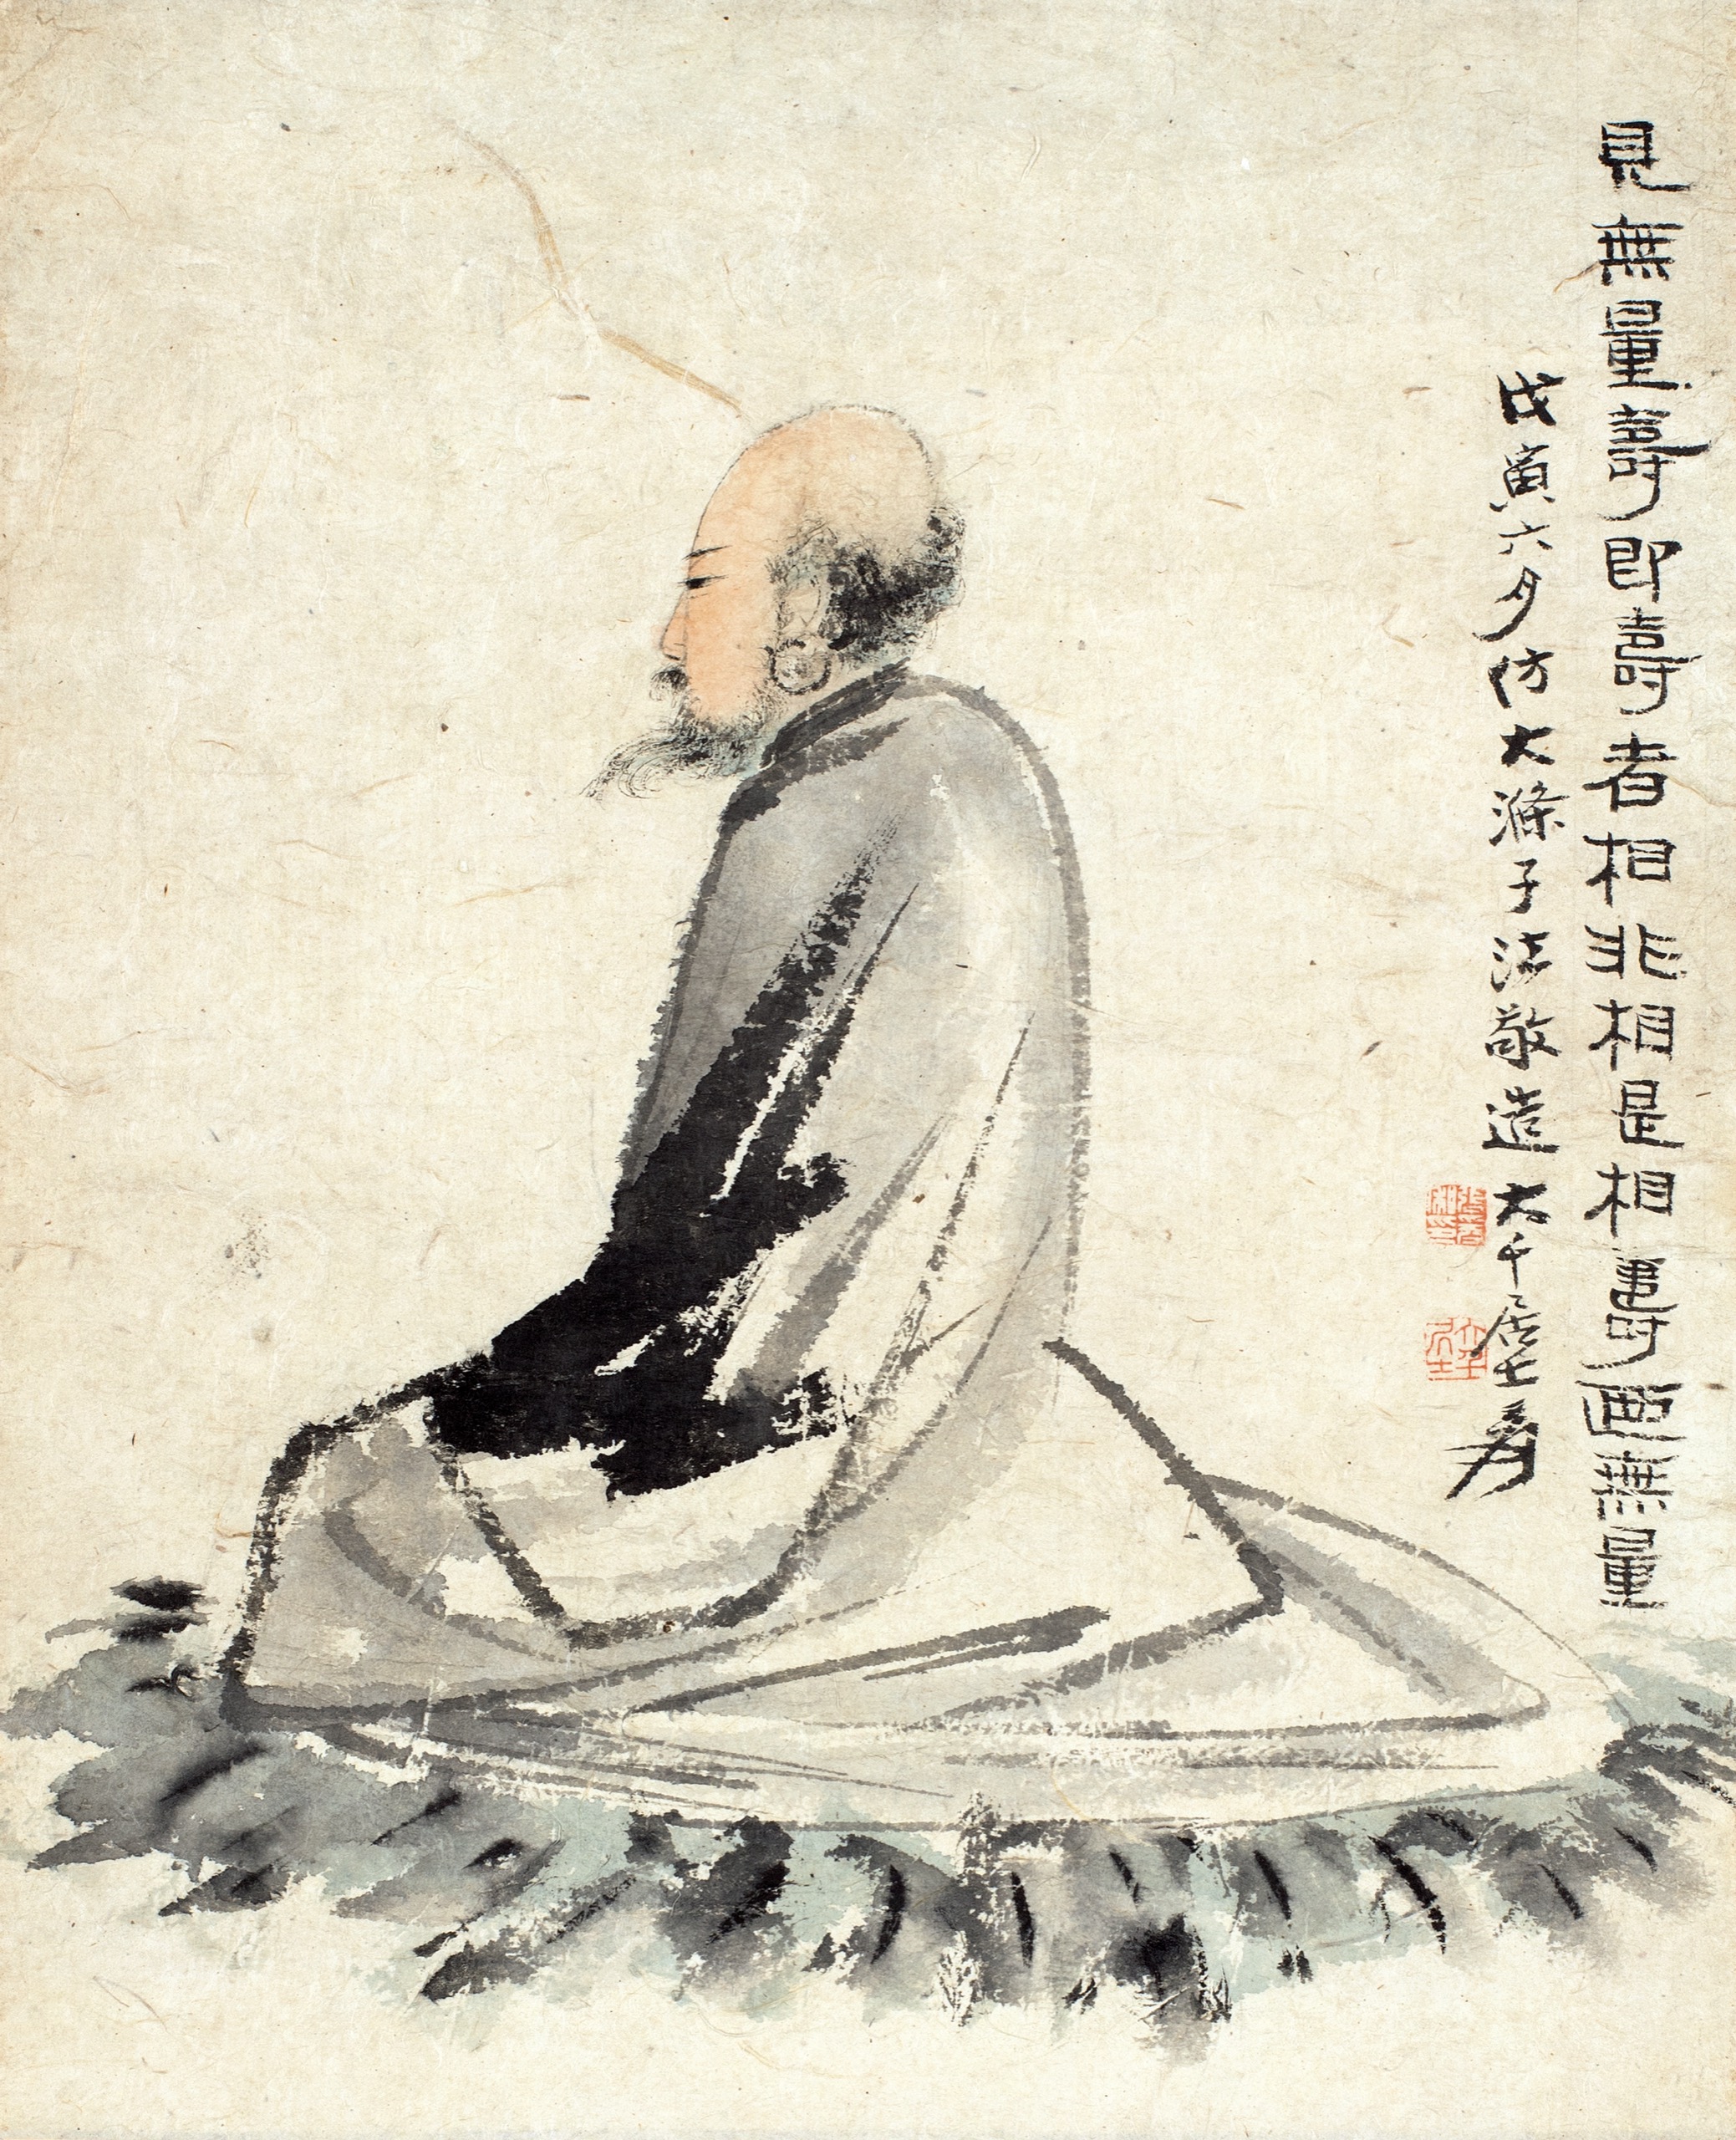 見無量壽即壽者相非相是相壽畫無量
戊寅六月仿大滌子法敬造大千居士爰